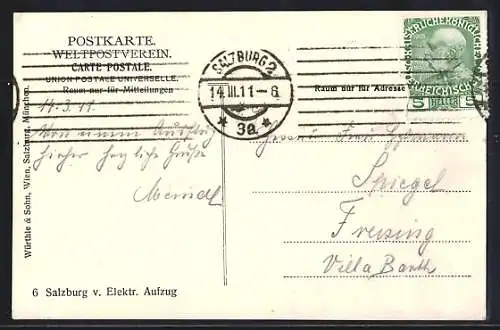 POSTKARTE.
WELTPOSTVEREIN.
CARTE POSTALE.
UNION POSTALE UNIVERSELLE.
Raum nur für Mitteilungen
SALZBURG 2
14 III.11-6
* 3a *
Raum nur für Adresse
5 HELLER 5
14.3.11.
Von einem Ausflug
hieher herzliche Grüße
Würthle & Sohn, Wien, Salzburg, München.
Spiegel
Freising
Villa Barth
6 Salzburg v. Elektr. Aufzug